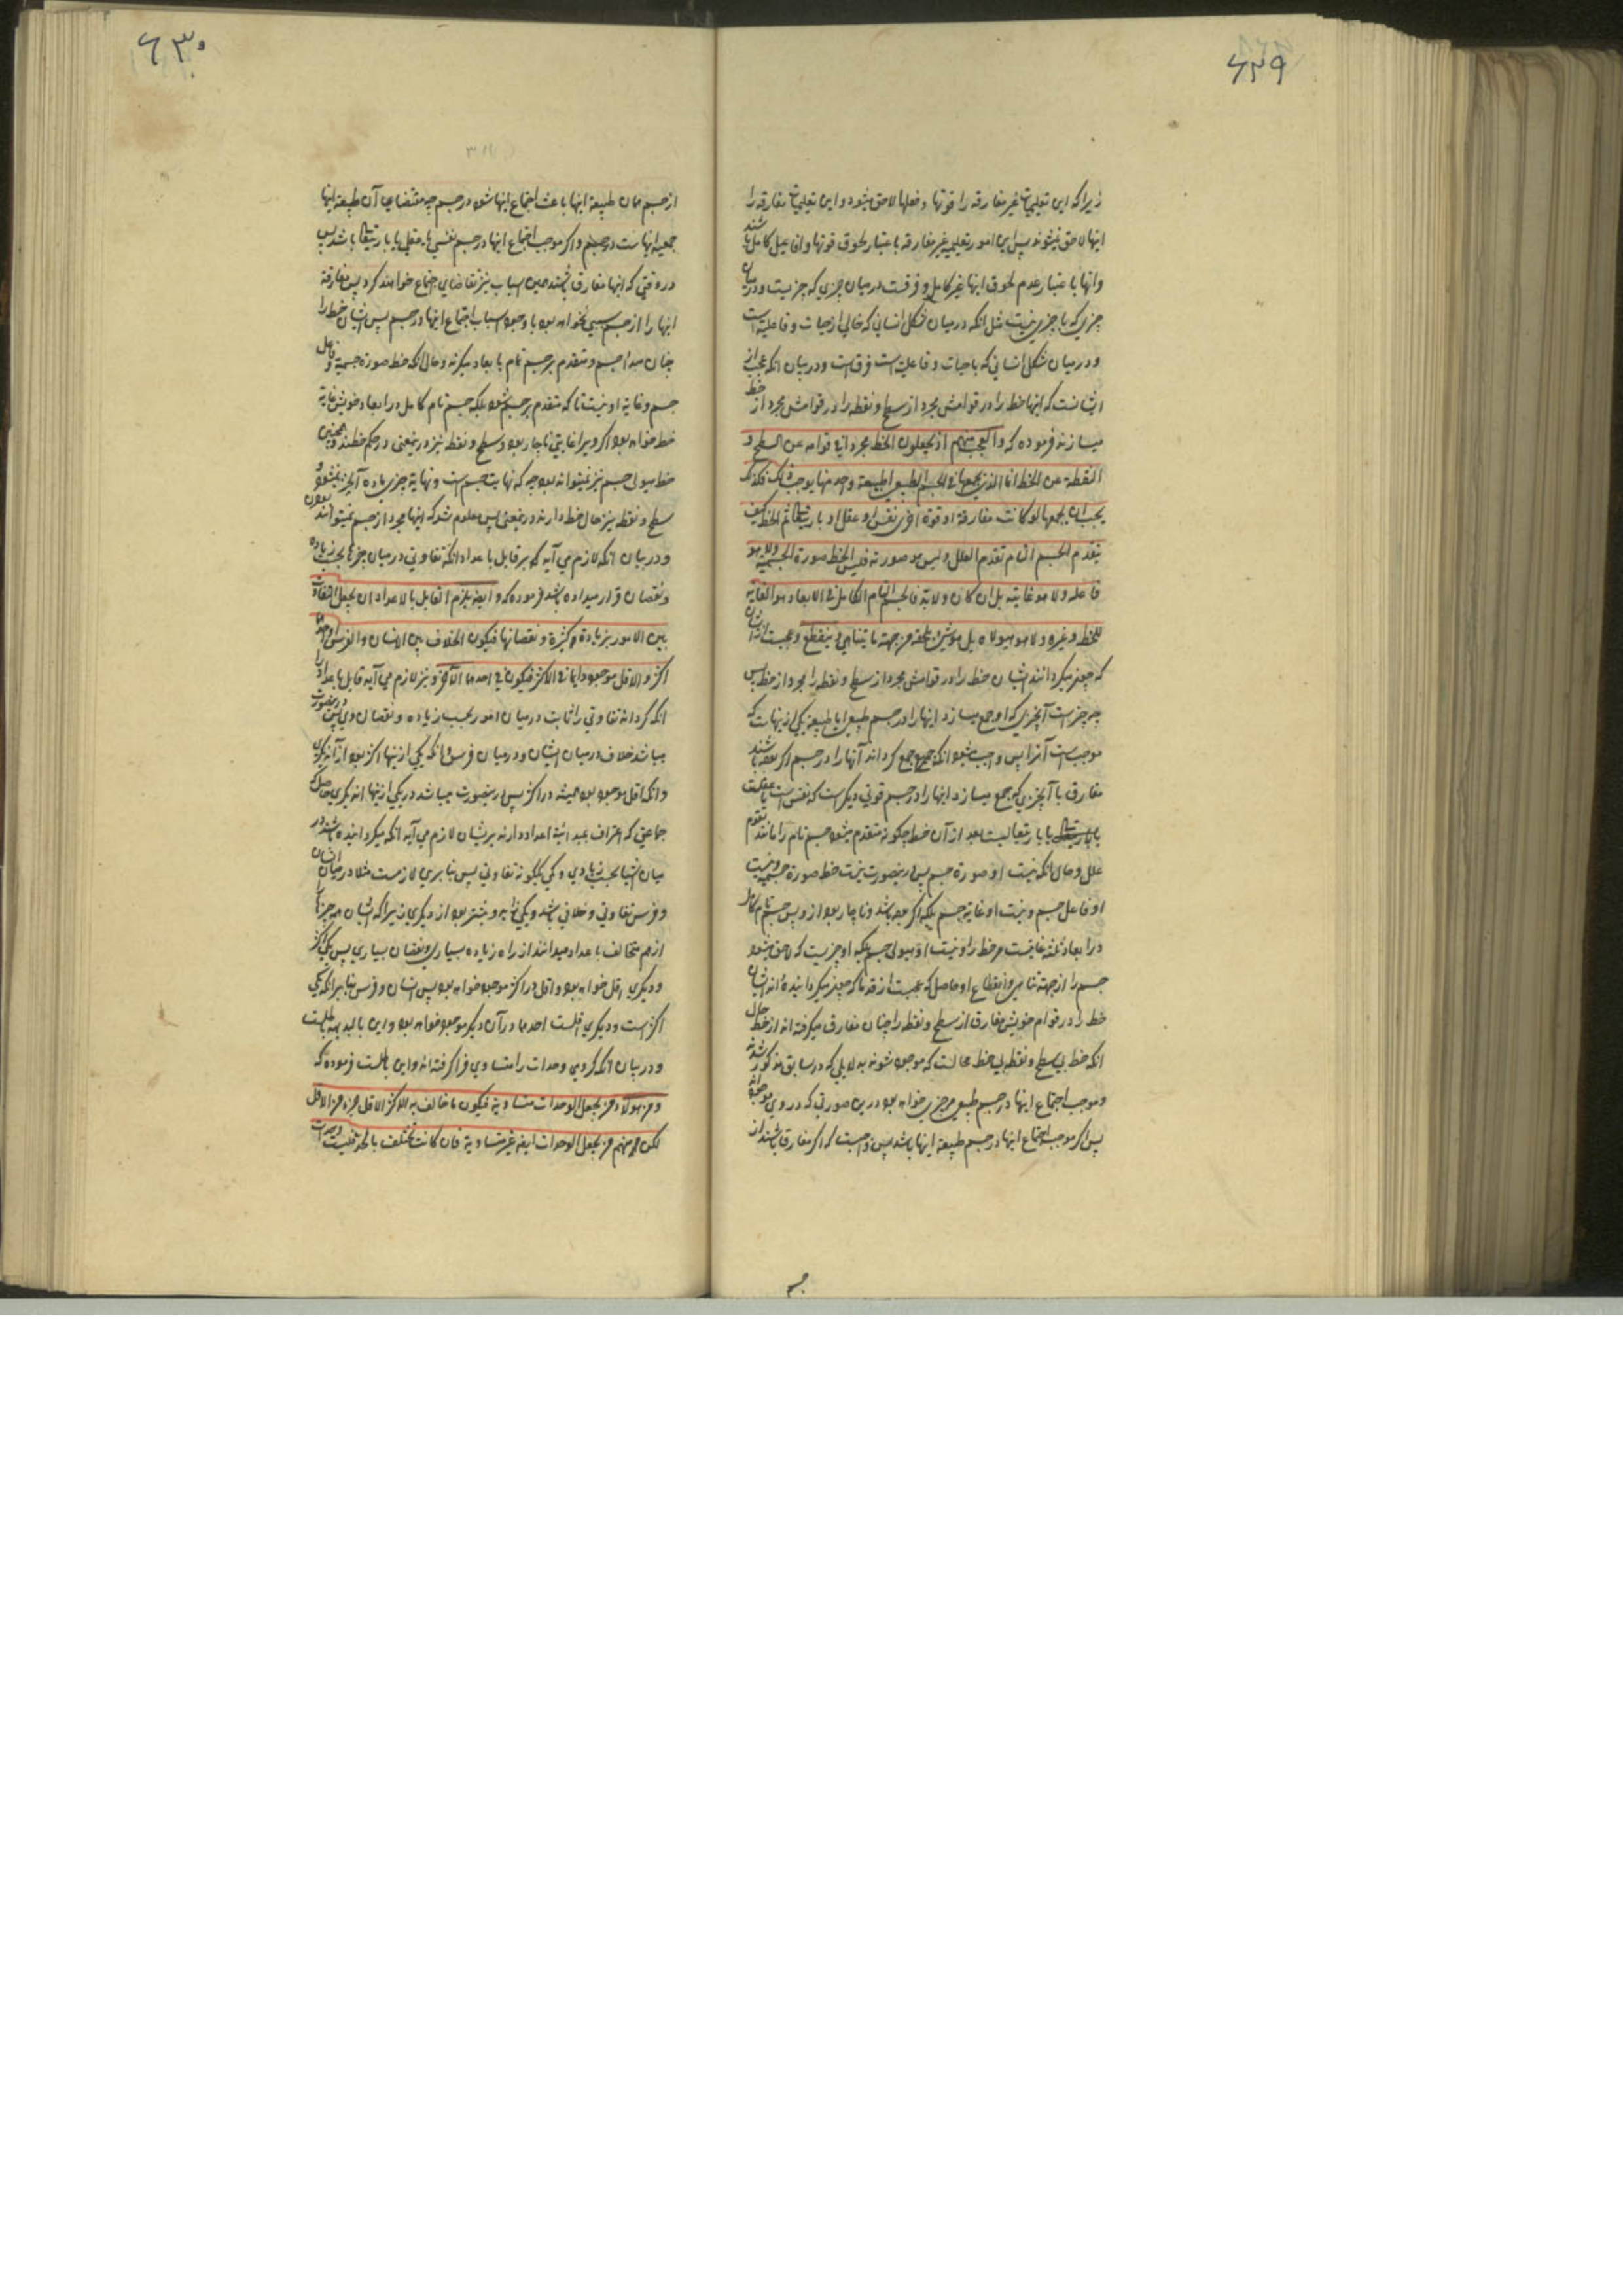 ۶۲۹
زیرا که این تعلیمیات غیر مفارقه را قوتها و فعلها لاحق میشود و این تعلیمیات مفارقه را
اینها لاحق نمیشوند پس این امور تعلیمی غیر مفارقه باعتبار لحوق قوتها و افاعیل کامل باشند
و آنها باعتبار عدم لحوق اینها غیر کامل و فرقست درمیان چیزی که چیزیست و درمیان
چیزی که با چیزی نیست مثل آنکه درمیان شکل انسانی که خالی از حیات و فاعلیت است
و درمیان شکل انسانی که با حیات و فاعلیت است فرق است و در بیان آنکه عجب از
ایشانست که اینها خط را در قوامش مجرد از سطح و نقطه را در قوامش مجرد از خط
میسازند فرموده که و العجب منهم اذ یجعلون الخط مجردا فی قوامه عن السطح و
النقطة عن الخط فما الذی یجمعها فی الجسم الطبیعی اطبیعة واحد منها یوجب ذلک فکذلک
یجب ان یجمعها لو کانت مفارقة او قوة اخری نفس او عقل او باری تعالی ثم الخط کیف
یتقدم الجسم التام تقدم العلل و لیس هو صورته فلیس الخط صورة الجسمیة و لا هو
فاعله و لا هو غایته بل ان کان و لابد فالجسم التام الکامل فی الابعاد هو الغایة
للخط و غیره و لا هو هیولاه بل هو شیء یلحقه من جهة ما یتناهی و ینقطع و عجبست از ایشان
که چون میگردانند ایشان خط را در قوامش مجرد از سطح و نقطه را مجرد از خط پس
چه چیز است آنچیزی که او جمع میسازد اینها را در جسم طبیعی ایا طبیعة یکی ازینهاست که
موجبست آنرا پس واجب میشود آنکه جمع گرداند آنها را در جسم اگر بوده باشند
مفارق یا آنچیزی که جمع میسازد اینها را در جسم قوتی دیگرست که نفس است یا عقلست
یا باری تعالیست بعد از آن خط چگونه متقدم میشود جسم تام را مانند تقدم
علل و حال آنکه نیست او صورة جسم پس درینصورت نیست خط صورة جسمیه و نیست
او فاعل جسم و نیست او غایة جسم بلکه اگر بوده باشد و ناچار بود از و پس جسم تام کامل
در ابعاد ثلثه غایتست مر خط را و نیست او هیولی جسم بلکه او چیزیست که لاحق میشود
جسم را از جهة تناهی و انقطاع او حاصل که عجبست از قدما که چون میگردانیده اند ایشان
خط را در قوام خویش مفارق از سطح و نقطه را چنان مفارق میگرفته اند از خط حال
آنکه خط بی سطح و نقطه بی خط محالست که موجود شوند به دلایلی که در سابق مذکور شدند
و موجب اجتماع اینها در جسم طبیعی چه چیزی خواهد بود درین صورتی که در وی موجوداند
پس اگر موجب اجتماع اینها در جسم طبیعة اینها باشد پس واجبست که اگر مفارق باشند از
جسم
۶۳۰
از جسم همان طبیعة اینها باعث اجتماع اینها شود در جسم چه مقتضای آن طبیعة اینها
جمعیة اینهاست در جسم و اگر موجب اجتماع اینها در جسم نفسی یا عقلی یا باری تعالی باشد پس
در وقتی که اینها مفارق باشند همین اسباب نیز تقاضای اجتماع خواهند کرد پس مفارقة
اینها را از جسم سببی نخواهد بود با وجود اسباب اجتماع اینها در جسم پس ایشان خط را
چنان مبدا جسم و متقدم بر جسم تام با ابعاد میگرند و حال آنکه خط صورة جسمیه و فاعل
جسم و غایة او نیست تا که متقدم بر جسم شود بلکه جسم تام کامل در ابعاد خویش غایة
خط خواهد بود اگر ویرا غایتی ناچار بود و سطح و نقطه نیز درینمعنی در حکم خطند و همچنین
خط هیولی جسم نیز نمیتواند بود چه که نهایت جسم است و نهایة چیزی ماده آنچیز نمیشود و
سطح و نقطه نیز حال خط دارند درینمعنی پس معلوم شد که اینها مجرد از جسم نمیتوانند بود
و در بیان آنکه لازم می آید که هر قایل باعداد آنکه تفاوتی درمیان چیزها بحسب زیاده
و نقصان قرار میداده باشد فرموده که و ایضا یلزم القایل بالاعداد ان یجعل التفاوت
بین الامور بزیادة کثرة و نقصانها فیکون الخلاف بین الانسان و الفرس ان احدهما
اکثر و الاقل موجود دایما فی الاکثر فیکون فی احدهما الآخر و نیز لازم می آید قایل باعداد را
آنکه گرداند تفاوتی را ثابت درمیان امور بحسب زیاده و نقصان وی پس درینصورت
میباشد خلاف درمیان انسان و درمیان فرس آنکه یکی ازینها اکثر بود از آن دیگری
و آنکه اقل موجود بود همیشه در اکثر پس درینصورت میباشد در یکی ازینها آن دیگری حاصل که
جماعتی که اعتراف بمبدائیة اعداد دارند بریشان لازم می آید آنکه میگردانیده باشند در
میان اشیا بحسب زیادی و کمی یگونه تفاوتی پس بنا برین لازمست مثلا درمیان انسان
و فرس تفاوتی و خلافی باشد و یکی زیاده و بیشتر بود از دیگری زیرا که ایشان همه چیز را
از هم متخالف باعداد میدانند از راه زیاده بسیاری و نقصان بسیاری پس یکی اکثر
و دیگری اقل خواهد بود و اقل در اکثر موجود خواهد بود پس انسان و فرس بنا برآنکه یکی
اکثر است و دیگری اقلست احدهما در آن دیگر موجود خواهد بود و این بالبدیهه باطلست
و در بیان آنکه گروهی وحدات را متساوی فرا گرفته اند و این باطلست فرموده که
و من هؤلاء من یجعل الوحدات متساویة فیکون ما خالف به الاکثر الاقل جزء من الاقل
لکن منهم من یجعل الوحدات ایضا غیر متساویة فان کانت تختلف بالحد فلیست وحدات